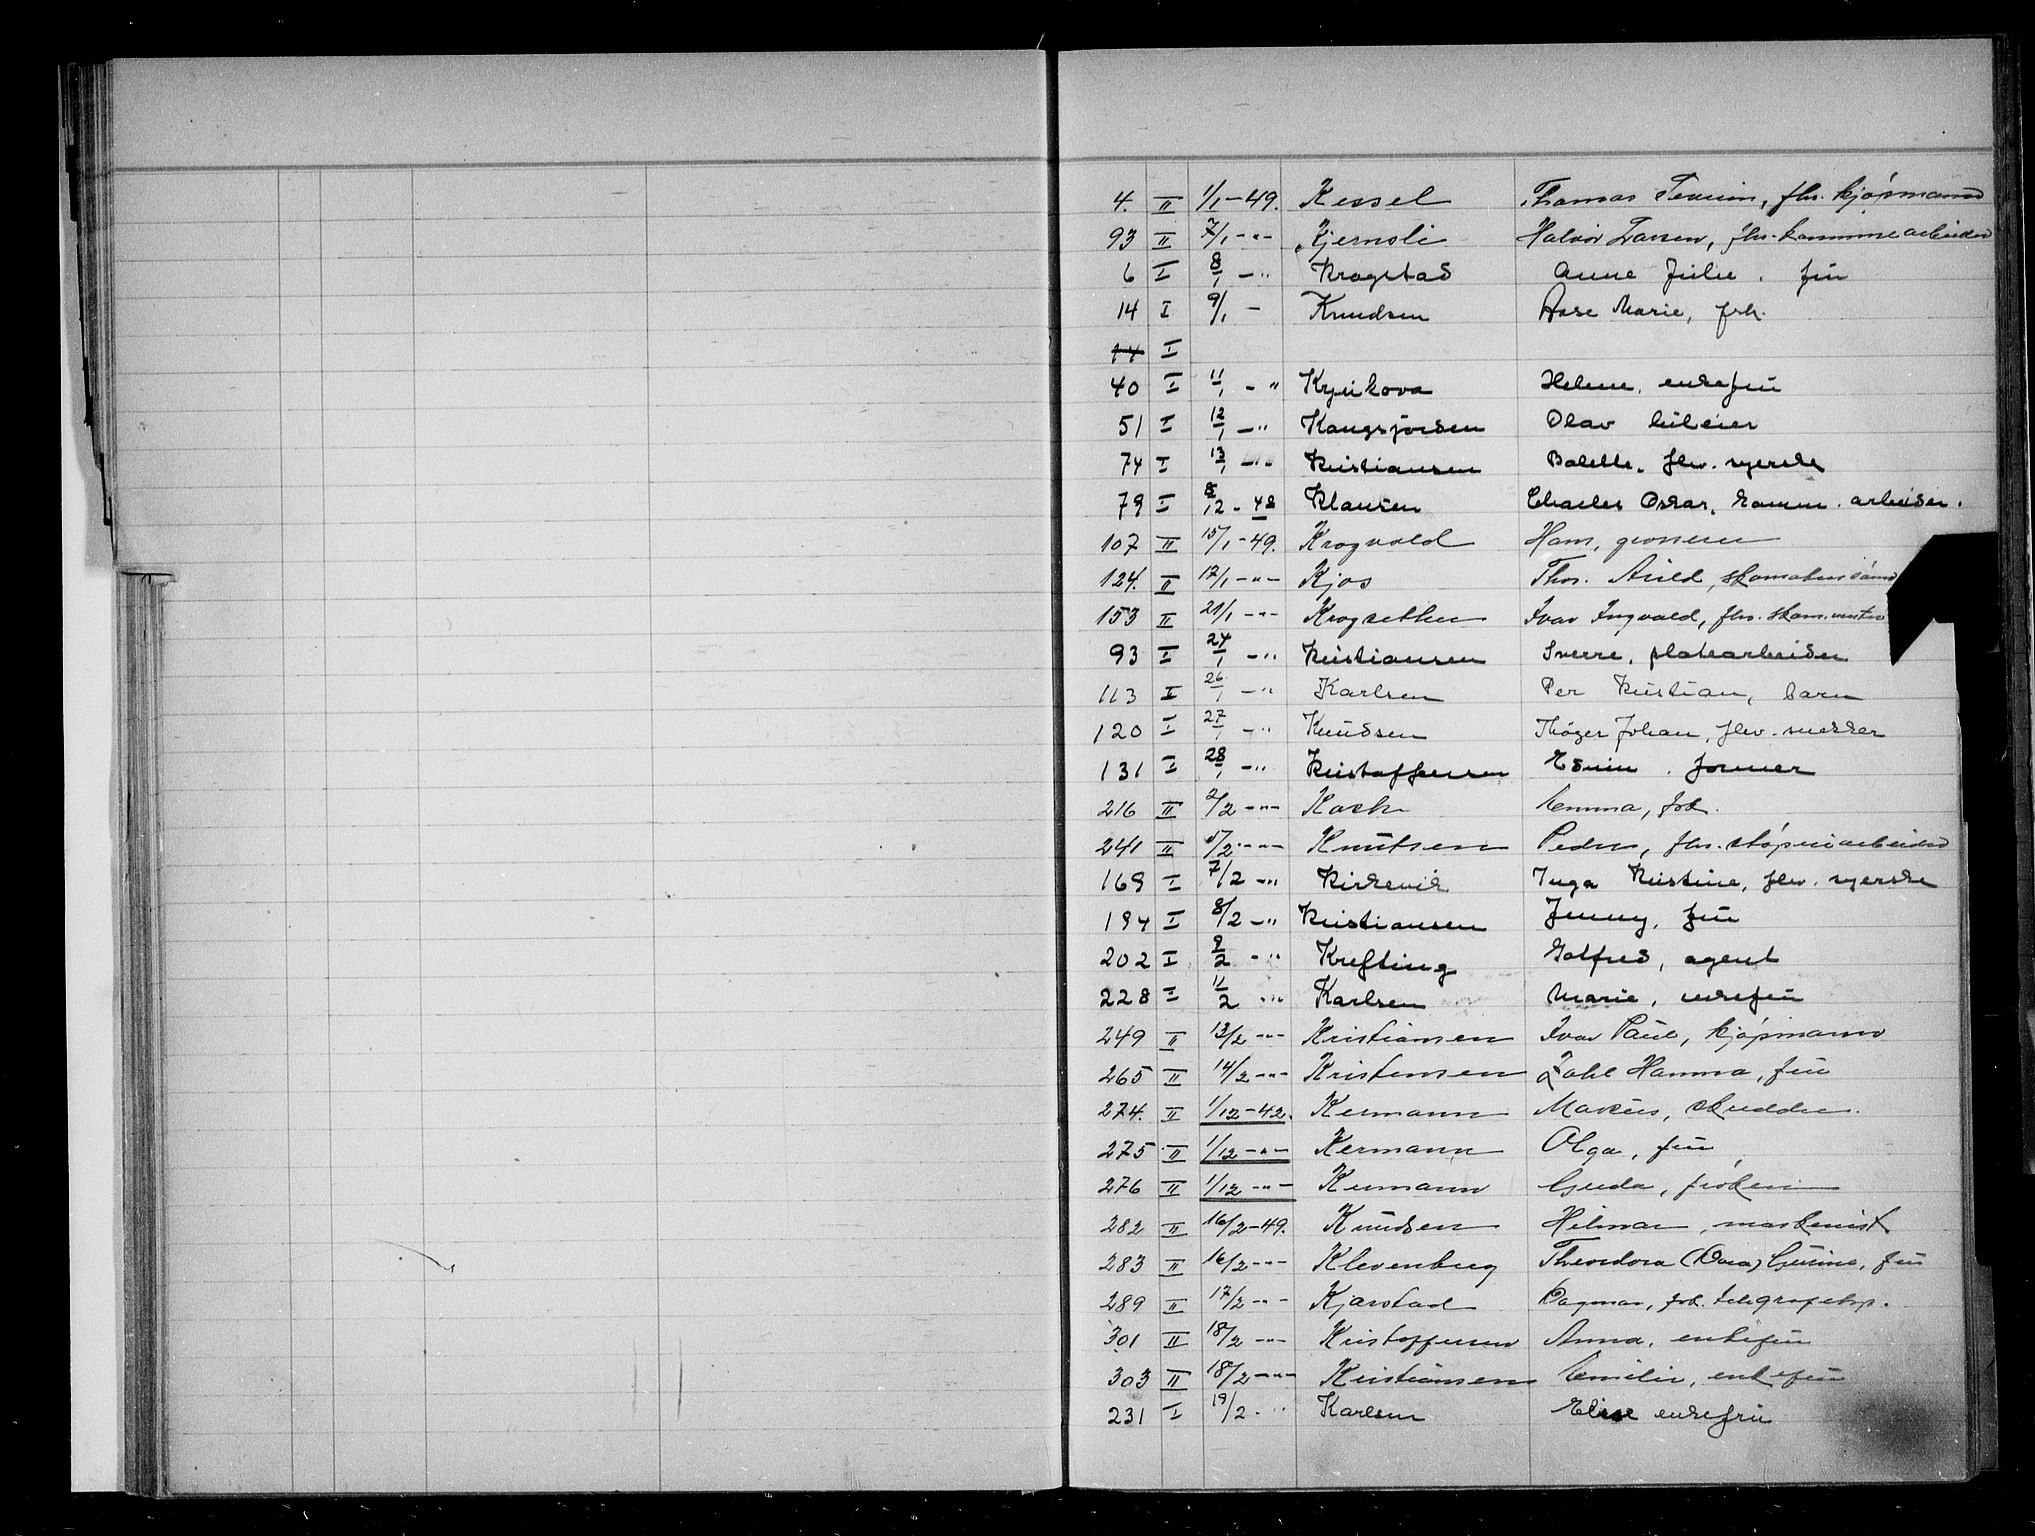 4. II 1/1-49. Kessel Thomas Severin, fhv. kjøpmann
93 II 7/1-"- Kjernsli Halvor Larsen, fhv. kommunearbeider
6 I 8/1 -" Krogstad Anne Julie. fru
14 I 9/1 - Knudsen Aase Marie, frk.
14 I
40 I 11/1 -" Krjukova Helene, enkefru
51 I 12/1 -" Kaugsjorden Olav bileier
74 I 13/1 -"- Kristiansen Bolette. fhv. syerske
79 I 8/12 - 48 Klausen Charles Oskar, komm. arbeider.
107 II 15/1-49. Krogvold Hans, grosserer
124. II 17/1-"- Kjos Thor. Arild, skomakersønn
153 II 21/1-"- Krogsether Ivar Ingvald, fhv.
93 I 24/1 -" Kristiansen Sverre, platearbeider
113 I 26/1 -" Karlsen Per Kristian, barn
120 I 27/1 -" Knudsen Thøger Johan, fhv. snekker
131 I 28/1 -" Kristoffersen Edvin. former
216 II 2/2-"- Koch Emma, frk.
241 II 5/2-"- Knutsen Peder, fhv. støperiarbeider
169 I 7/2 -" Kirkevik Inga Kristine, fhv. syerske
194 I 8/2 -" Kristiansen Jenny, fru
202 I 9/2 -" Krefting Gotfred, agent
228 I 11/2 " Karlsen Marie, enkefru
249 II 13/2-"- Kristiansen Ivar Paul, kjøpmann
265 II 14/2-"- Kristensen Hanna, fru
274. II 1/12-42. Kermann Markus, skredder.
275 II 1/12-"- Kermann Olga, fru
276 II 1/12-"- Kermann Gerda, frøken
282 II 16/2-49. Knudsen Hilmar, maskinist
283 II 16/2-"- Klevenberg Theodora (Dora) Gurine, fru
289 II 17/2-"- Kjørstad Dagmar, frk. telegrafeksp.
301 II 18/2-"- Kristoffersen Anna, enkefru
303 II 18/2-"- Kristiansen Emilie, enkefru
231 I 19/2. " Karlsen Elise enkefru